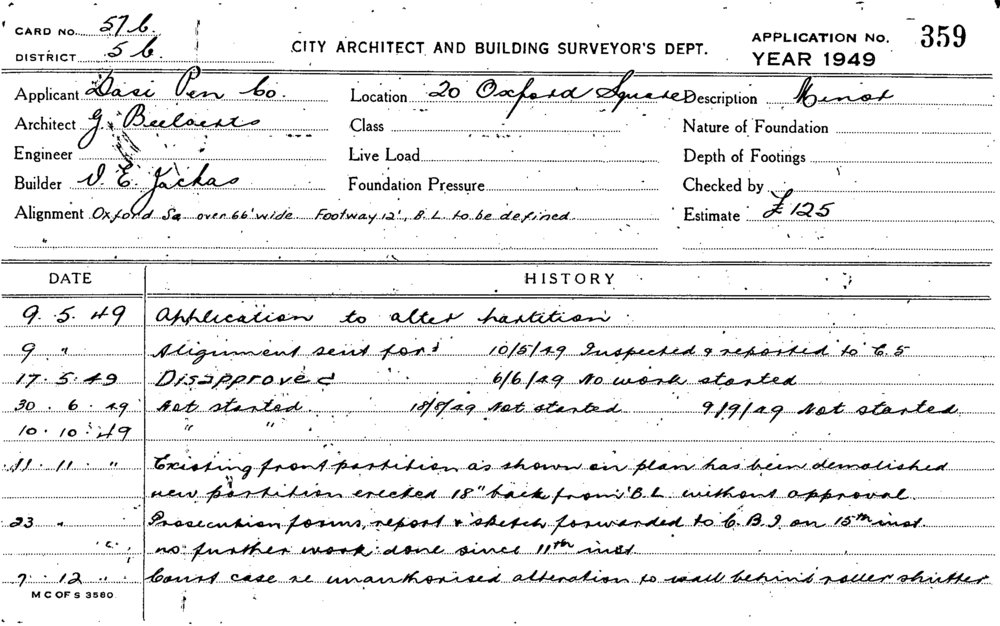 CARD NO. 57 b.
DISTRICT 5 b
CITY ARCHITECT AND BUILDING SURVEYOR'S DEPT.
APPLICATION NO. 359
YEAR 1949
Applicant Dasi Pen Co. Location 20 Oxford Square Description Minor
Architect G. Class Nature of Foundation
Engineer Live Load Depth of Footings
Builder V. E. Foundation Pressure Checked by
Alignment Oxford Sq over 66' wide. Footway 12', B.L. to be defined. Estimate £125
DATE HISTORY
9. 5. 49 Application to alter partition
9 " Alignment sent for 10/5/49 Inspected & reported to C.S
17. 5. 49 Disapproved 6/6/49 No work started
30. 6. 49 Not started 18/8/49 Not started 9/9/49 Not started
10. 10. 49 " "
11. 11. " Existing front partition as shown on plan has been demolished
new partition erected 18" back from B.L. without approval.
23 " Prosecution forms, report & sketch forwarded to C.B.I on 15th inst.
" no further work done since 11th inst.
7. 12 " Court case re unauthorised alteration to wall behind roller shutter
M C OF S 3580